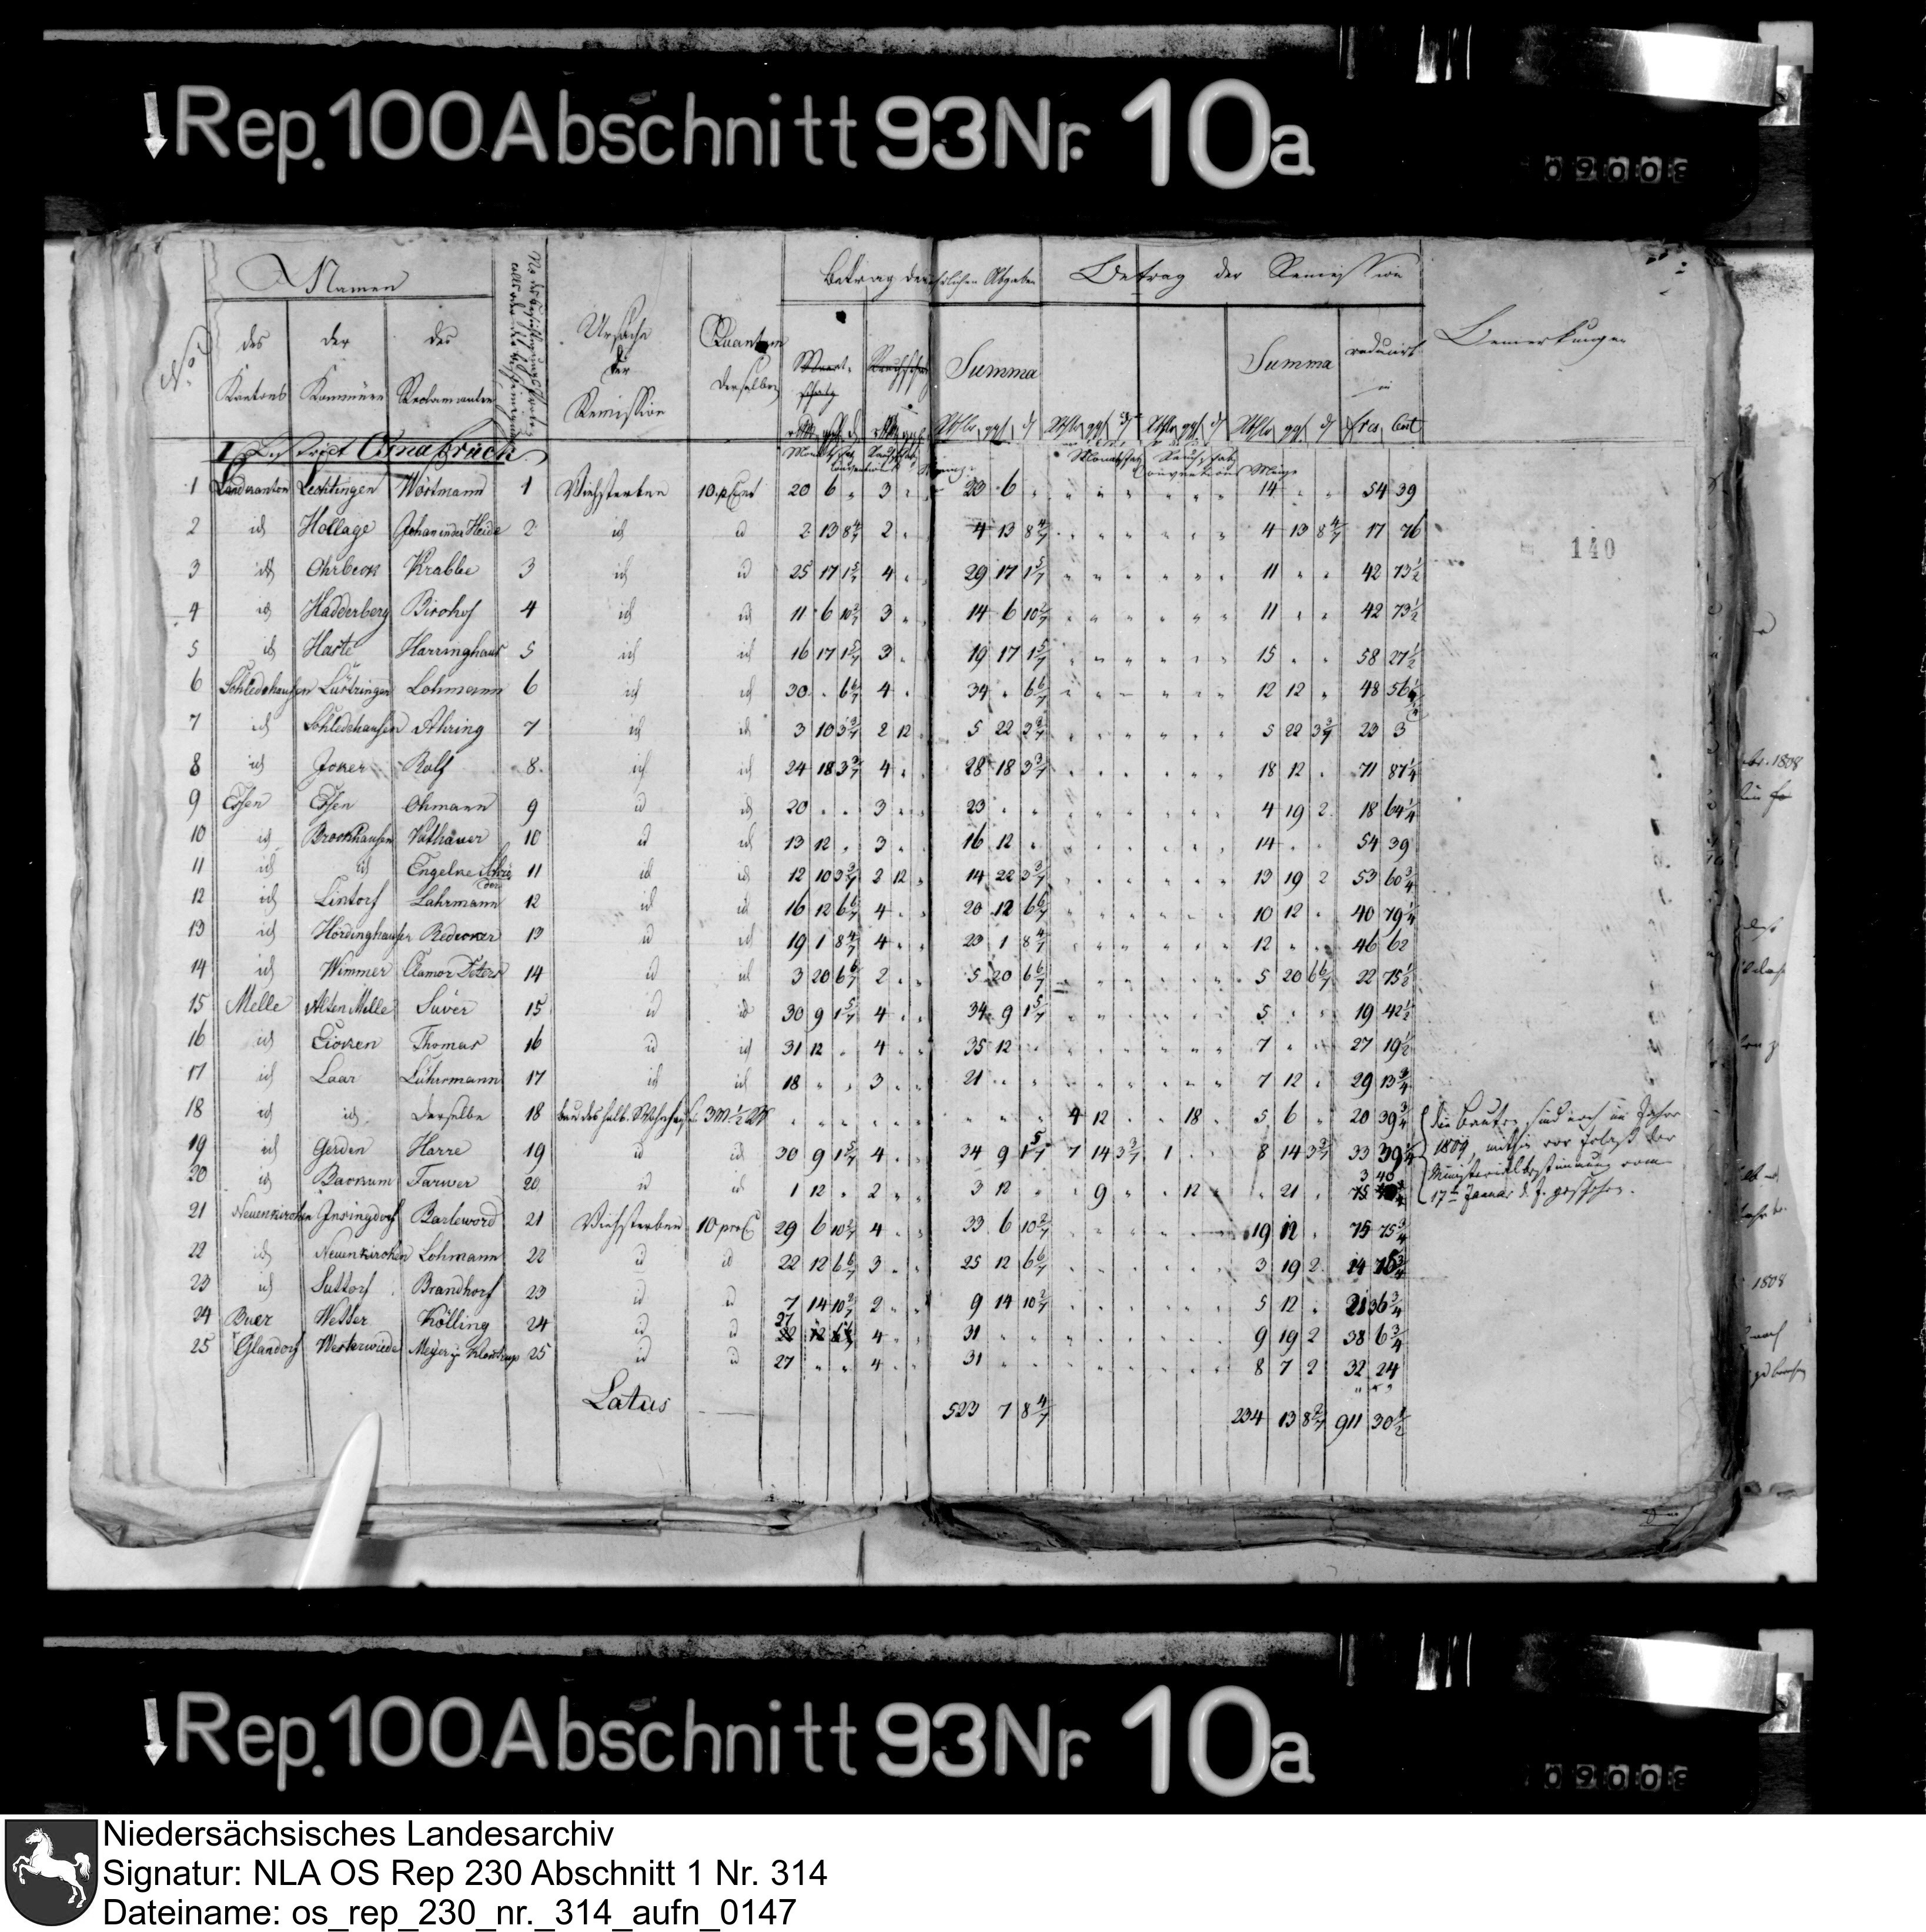 Rep. 100 Abschnitt 93 Nr. 10a
Namen Betrag der jährlichen Abgaben Betrag der Remission
No des Kantons der Kommünen des Reclamanten Ursache der Remission Quantum derselben Monatschatz Rauchschatz Summa Summa reducirt in Bemerkungen
Rthlr ggl d Rthlr ggl d Rthlr ggl d Rthlr ggl d frcs Cent
I District Osnabrück
1 Landcanton Lechtingen Wörtmann 1 Viehsterben 10 pCent 20 6 " 3 " 23 6 " 14 " " 54 39
2 id Hollage Johan in der Heide 2 id id 2 13 8 4/7 2 " 4 13 8 4/7 4 13 8 4/7 17 76
3 id Ohrbeck Krabbe 3 id id 25 17 1 5/7 4 " 29 17 1 5/7 11 " " 42 73 1/2
4 id Hadderberg Birohof 4 id id 11 6 10 2/7 3 " 14 6 10 2/7 11 " " 42 73 1/2
5 id Haste Harringhaus 5 id id 16 17 1 5/7 3 " 19 17 1 5/7 15 " " 58 27 1/2
6 Schledehausen Lüstringen Lohmann 6 id id 30 " 6 6/7 4 " 34 " 6 6/7 12 12 " 48 56
7 id Schledehausen Athring 7 id id 3 10 3 3/7 2 12 5 22 3 3/7 5 22 3 3/7 23 3
8 id Jeker Rolf 8 id id 24 18 3 3/7 4 " 28 18 3 3/7 18 12 " 71 87 1/4
9 Essen Essen Ohmann 9 id id 20 " " 3 " 23 " " 4 19 2 18 64 1/4
10 id Brockhausen Vathauer 10 id id 13 12 " 3 " 16 12 " 14 " " 54 39
11 id id Engelke 11 id id 12 10 3 3/7 2 12 " 14 22 3 3/7 13 19 2 53 60 3/4
12 id Lintorf Lahrmann 12 id id 16 12 6 6/7 4 " " 20 12 6 6/7 10 12 " 40 79 1/4
13 id Hördinghausen Redecker 13 id id 19 1 8 4/7 4 " " 23 1 8 4/7 12 " " 46 62
14 id Wimmer Clamor Peters 14 id id 3 20 6 6/7 2 " " 5 20 6 6/7 5 20 6 6/7 22 75 1/2
15 Melle Alten Melle Süver 15 id id 30 9 1 5/7 4 " " 34 9 1 5/7 5 " " 19 42 1/2
16 id Eicken Thomas 16 id id 31 12 " 4 " " 35 12 " 7 " " 27 19 1/2
17 id Laar Lührmann 17 id id 18 " " 3 " " 21 " " 7 12 " 29 13 3/4
18 id id Derselbe 18 4 12 " " 18 " 5 6 " 20 39 3/4 die Bauten sind noch im Jahre
19 id Gerden Harre 19 id id 30 9 1 5/7 4 " " 34 9 1 5/7 7 14 3 3/7 1 " " 8 14 3 3/7 33 39 1/4 1809, mithin vor Erlaß der
20 id Backum Farwer 20 id id 1 12 " 2 " " 3 12 " " 9 " " 12 " " 21 " 3 40 Ministerialbestimmung vom
17ten Januar d. J. geschehen.
21 Neuenkirchen Insingdorf Barlewerd 21 Viehsterben 10 proC 29 6 10 2/7 4 " " 33 6 10 2/7 19 12 " 75 75 3/4
22 id Neuenkirchen Lohmann 22 id id 22 12 6 6/7 3 " " 25 12 6 6/7 3 19 2 14 76 3/4
23 id Suttorf Brandhorf 23 id id 7 14 10 2/7 2 " " 9 14 10 2/7 5 12 " 21 36 3/4
24 Buer Wetter Kölling 24 id id 27 4 " 31 " " 9 19 2 38 6 3/4
25 Glandorf Westerwiede Meyer 25 id id 27 " " 4 " " 31 " " 8 7 2 32 24
Latus 523 7 8 4/7 234 13 8 2/7 911 30 1/2
140
Rep. 100 Abschnitt 93 Nr. 10a
Niedersächsisches Landesarchiv
Signatur: NLA OS Rep 230 Abschnitt 1 Nr. 314
Dateiname: os_rep_230_nr._314_aufn_0147